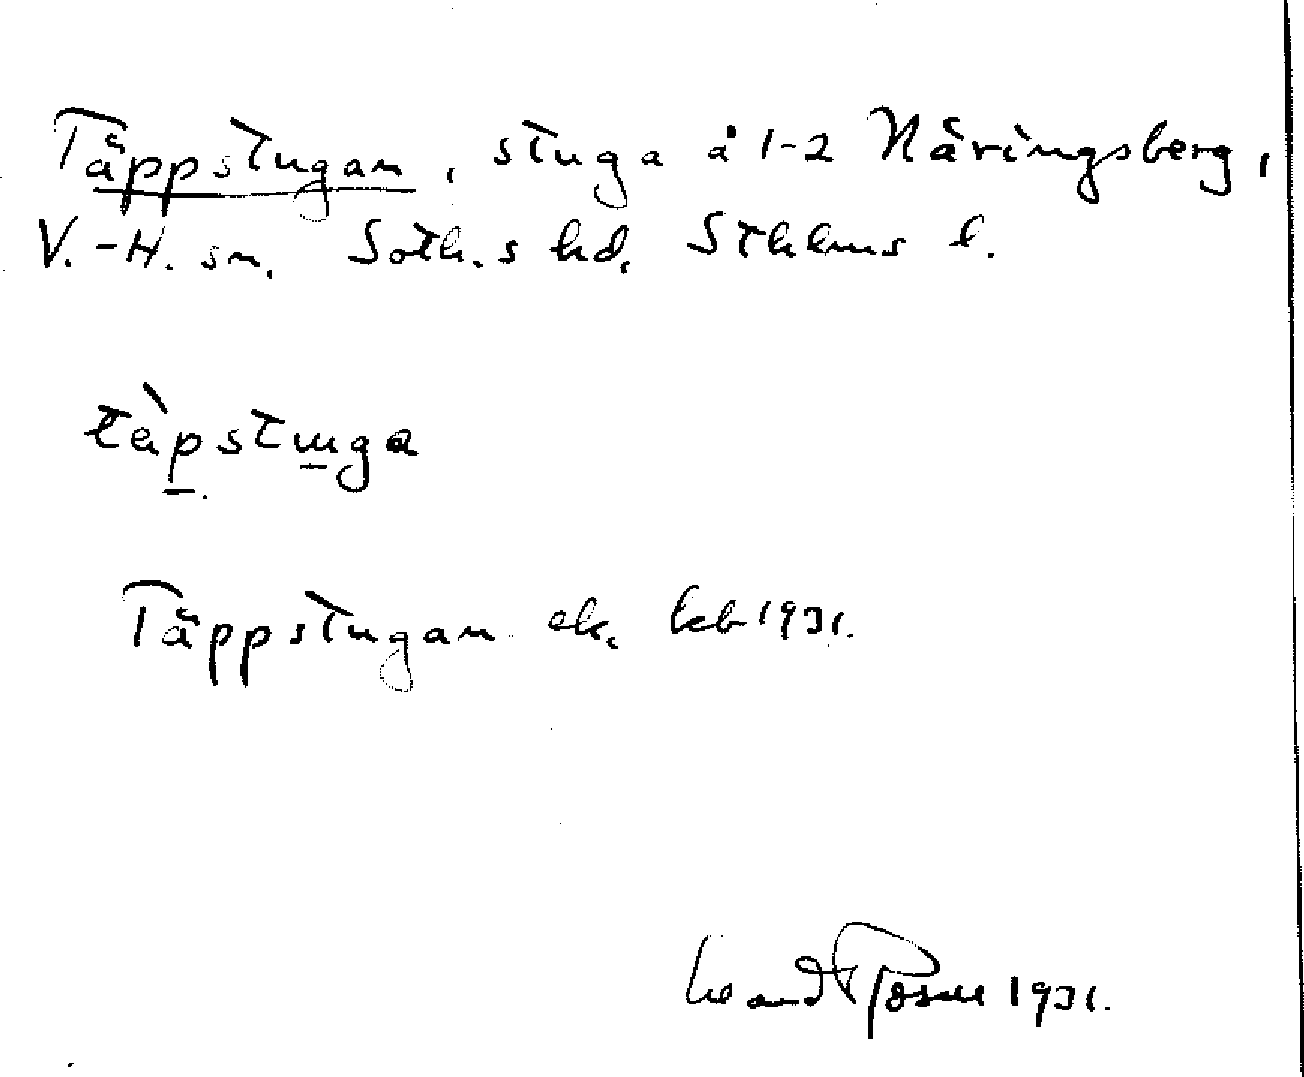 Täppstugan, stuga å 1-2 Näringsberg,
V.-H. sn. Soth.s hd. Sthlms l.
täpstuga
Täppstugan ek. kb 1931.
1931.